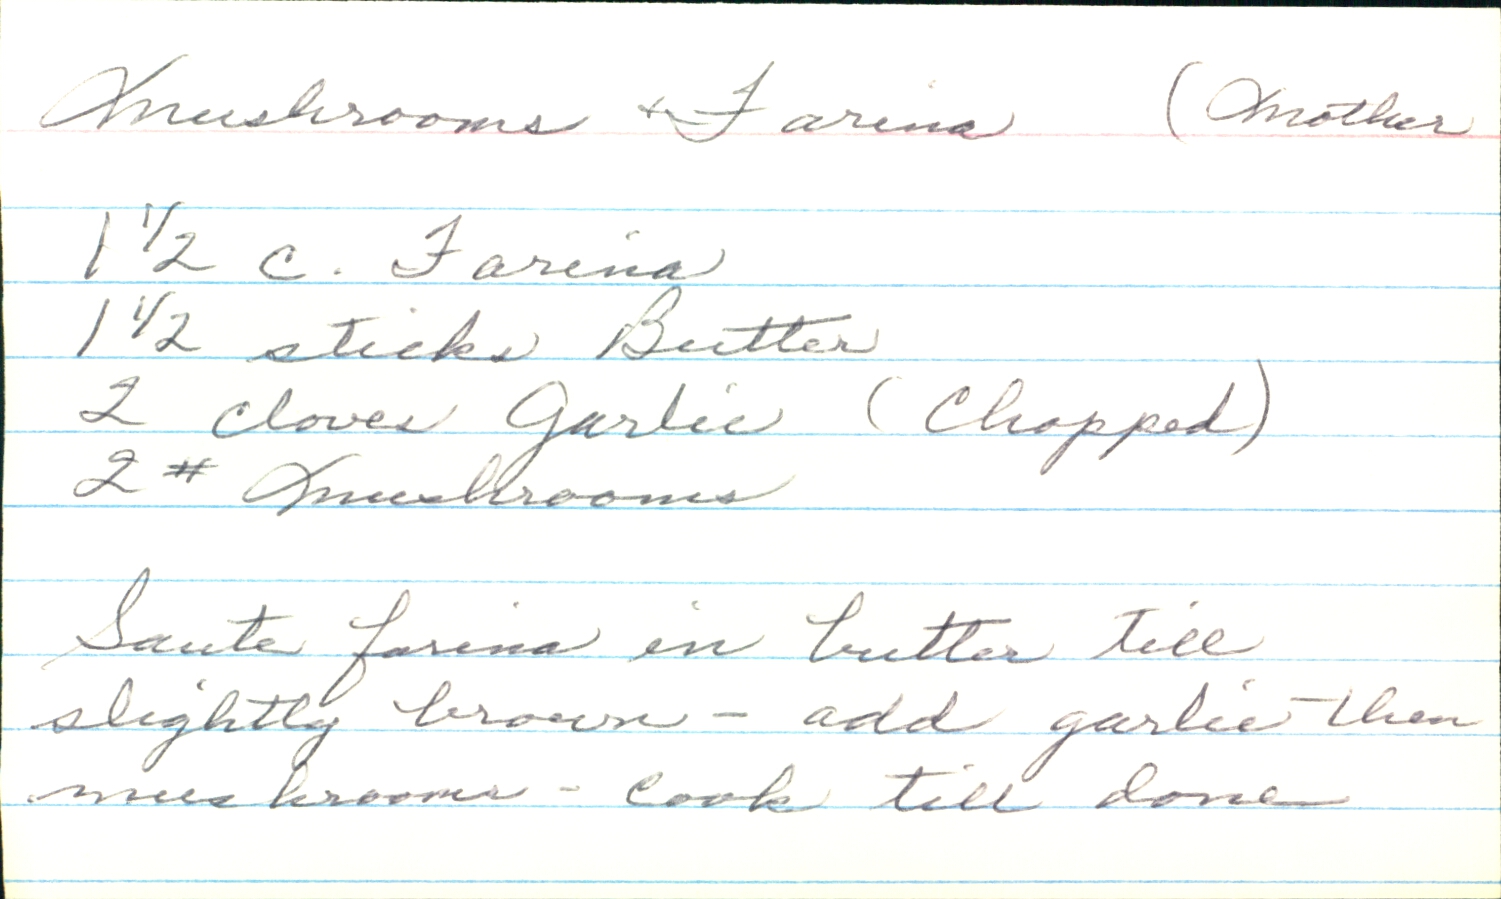 Mushrooms + Farina (Mother
1 1/2 c. Farina
1 1/2 sticks Butter
2 cloves Garlic (Chopped)
2 # Mushrooms
Saute farina in butter till
slightly brown - add garlic - then
mushrooms - cook till done